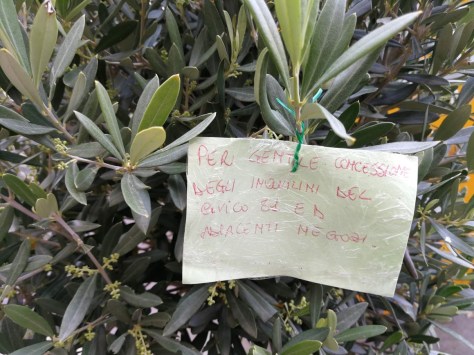 PER GENTILE CONCESSIONE
DEGLI INQUILINI DEL
CIVICO 61 E D
ADIACENTI NEGOZI.